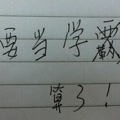 要当学霸
算了!